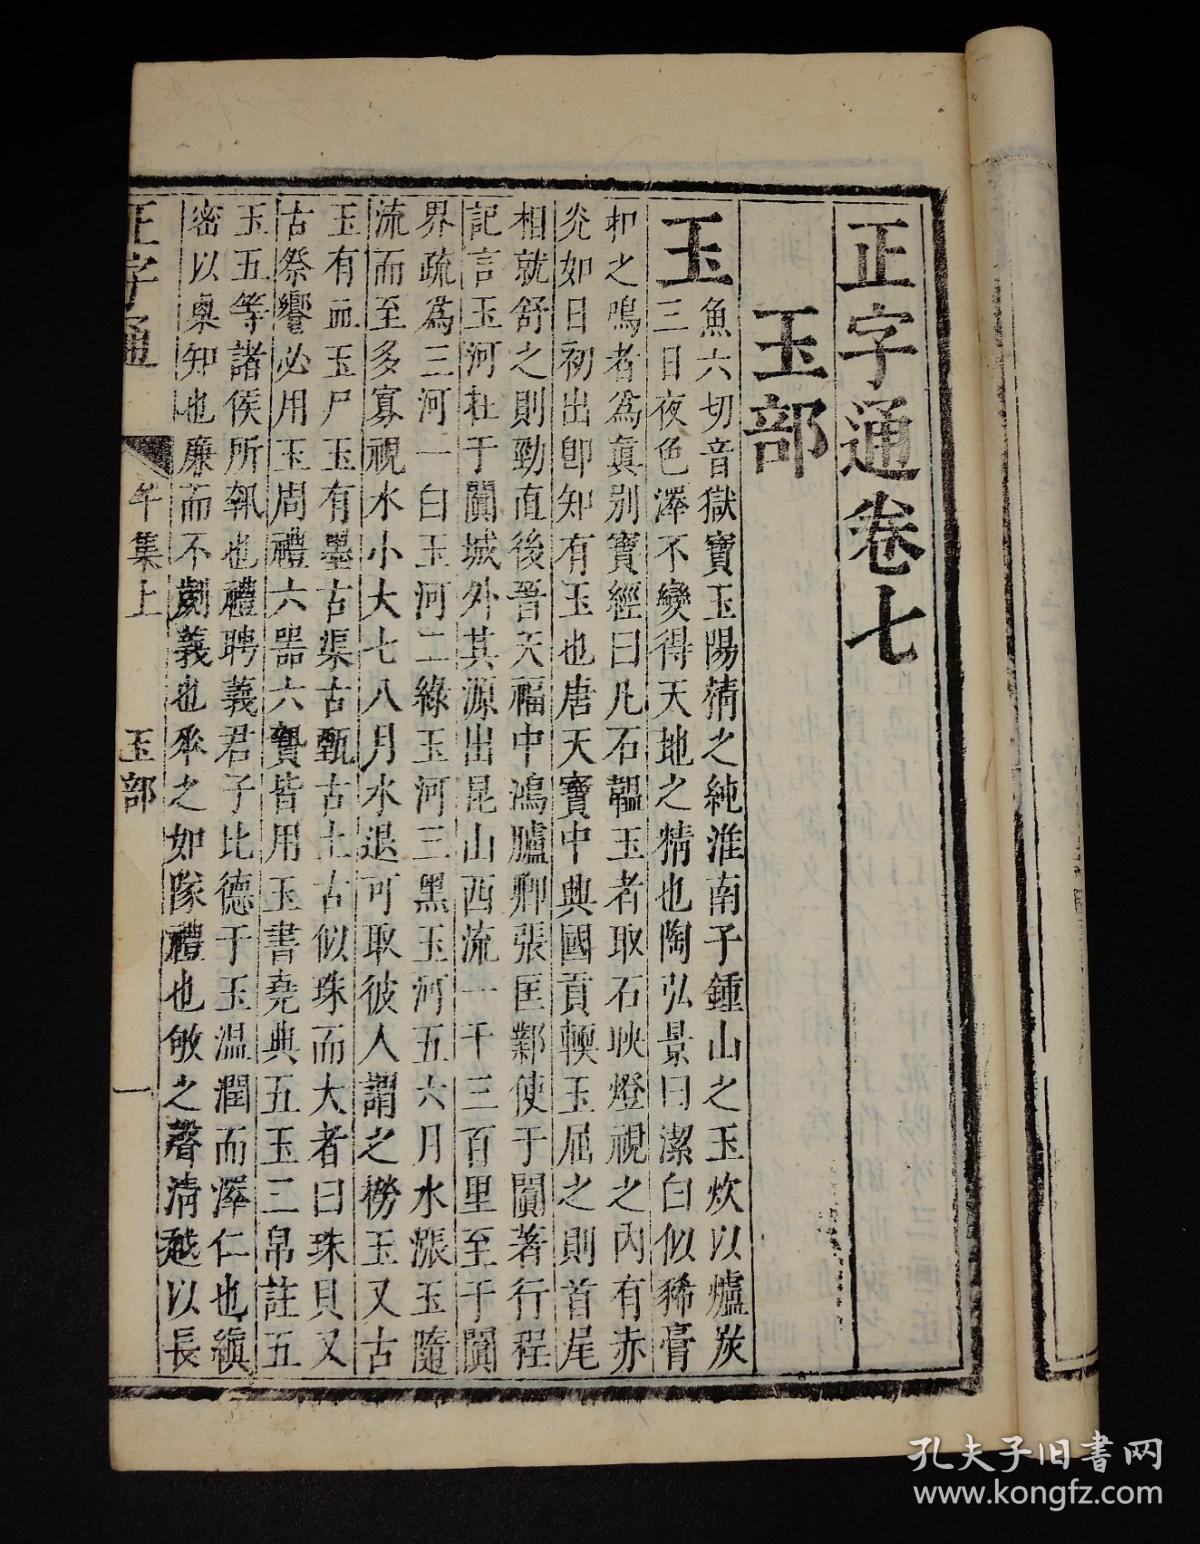 正字通卷七
玉部
玉
魚六切音獄寶玉陽精之純淮南子鍾山之玉炊以爐炭
三日夜色澤不變得天地之精也陶弘景曰潔白似豨膏
叩之鳴者為真別寶經曰凡石韞玉者取石映燈視之內有赤
光如日初出卽知有玉也唐天寶中典國貢輭玉屈之則首尾
相就舒之則勁直後晉天福中鴻臚卿張匡鄴使于闐著行程
記言玉河在于闐城外其源出昆山西流一千三百里至于闐
界疏為三河一白玉河二綠玉河三黑玉河五六月水漲玉隨
流而至多寡視水小大七八月水退可取彼人謂之撈玉又古
玉有血玉尸玉有墨古渠古甄古土古似珠而大者曰珠貝又
古祭饗必用玉周禮六器六贄皆用玉書堯典五玉三帛註五
玉五等諸侯所執也禮聘義君子比德于玉温潤而澤仁也縝
密以㮚知也廉而不劌義也垂之如隊禮也敂之聲清越以長
正字通
午集上
玉部
一
孔夫子旧书网
www.kongfz.com